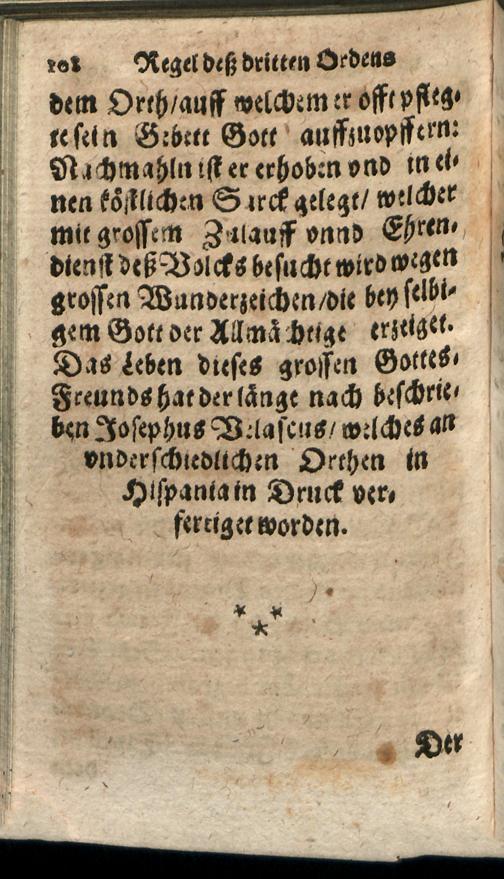 108 Regel deß dritten Ordens
dem Orth/auff welchem er offt pfleg-
te sein Gebett Gott auffzuopffern:
Nachmahln ist er erhoben vnd in ei-
nen köstlichen Sarck gelegt/ welcher
mit grossem Zulauff vnnd Ehren-
dienst deß Volcks besucht wird wegen
grossen Wunderzeichen/die bey selbi-
gem Gott der Allmächtige erzeiget.
Das Leben dieses grossen Gottes-
Freunds hat der länge nach beschrie-
ben Josephus Velascus/ welches an
vnderschiedlichen Orthen in
Hispania in Druck ver-
fertiget worden.
Der